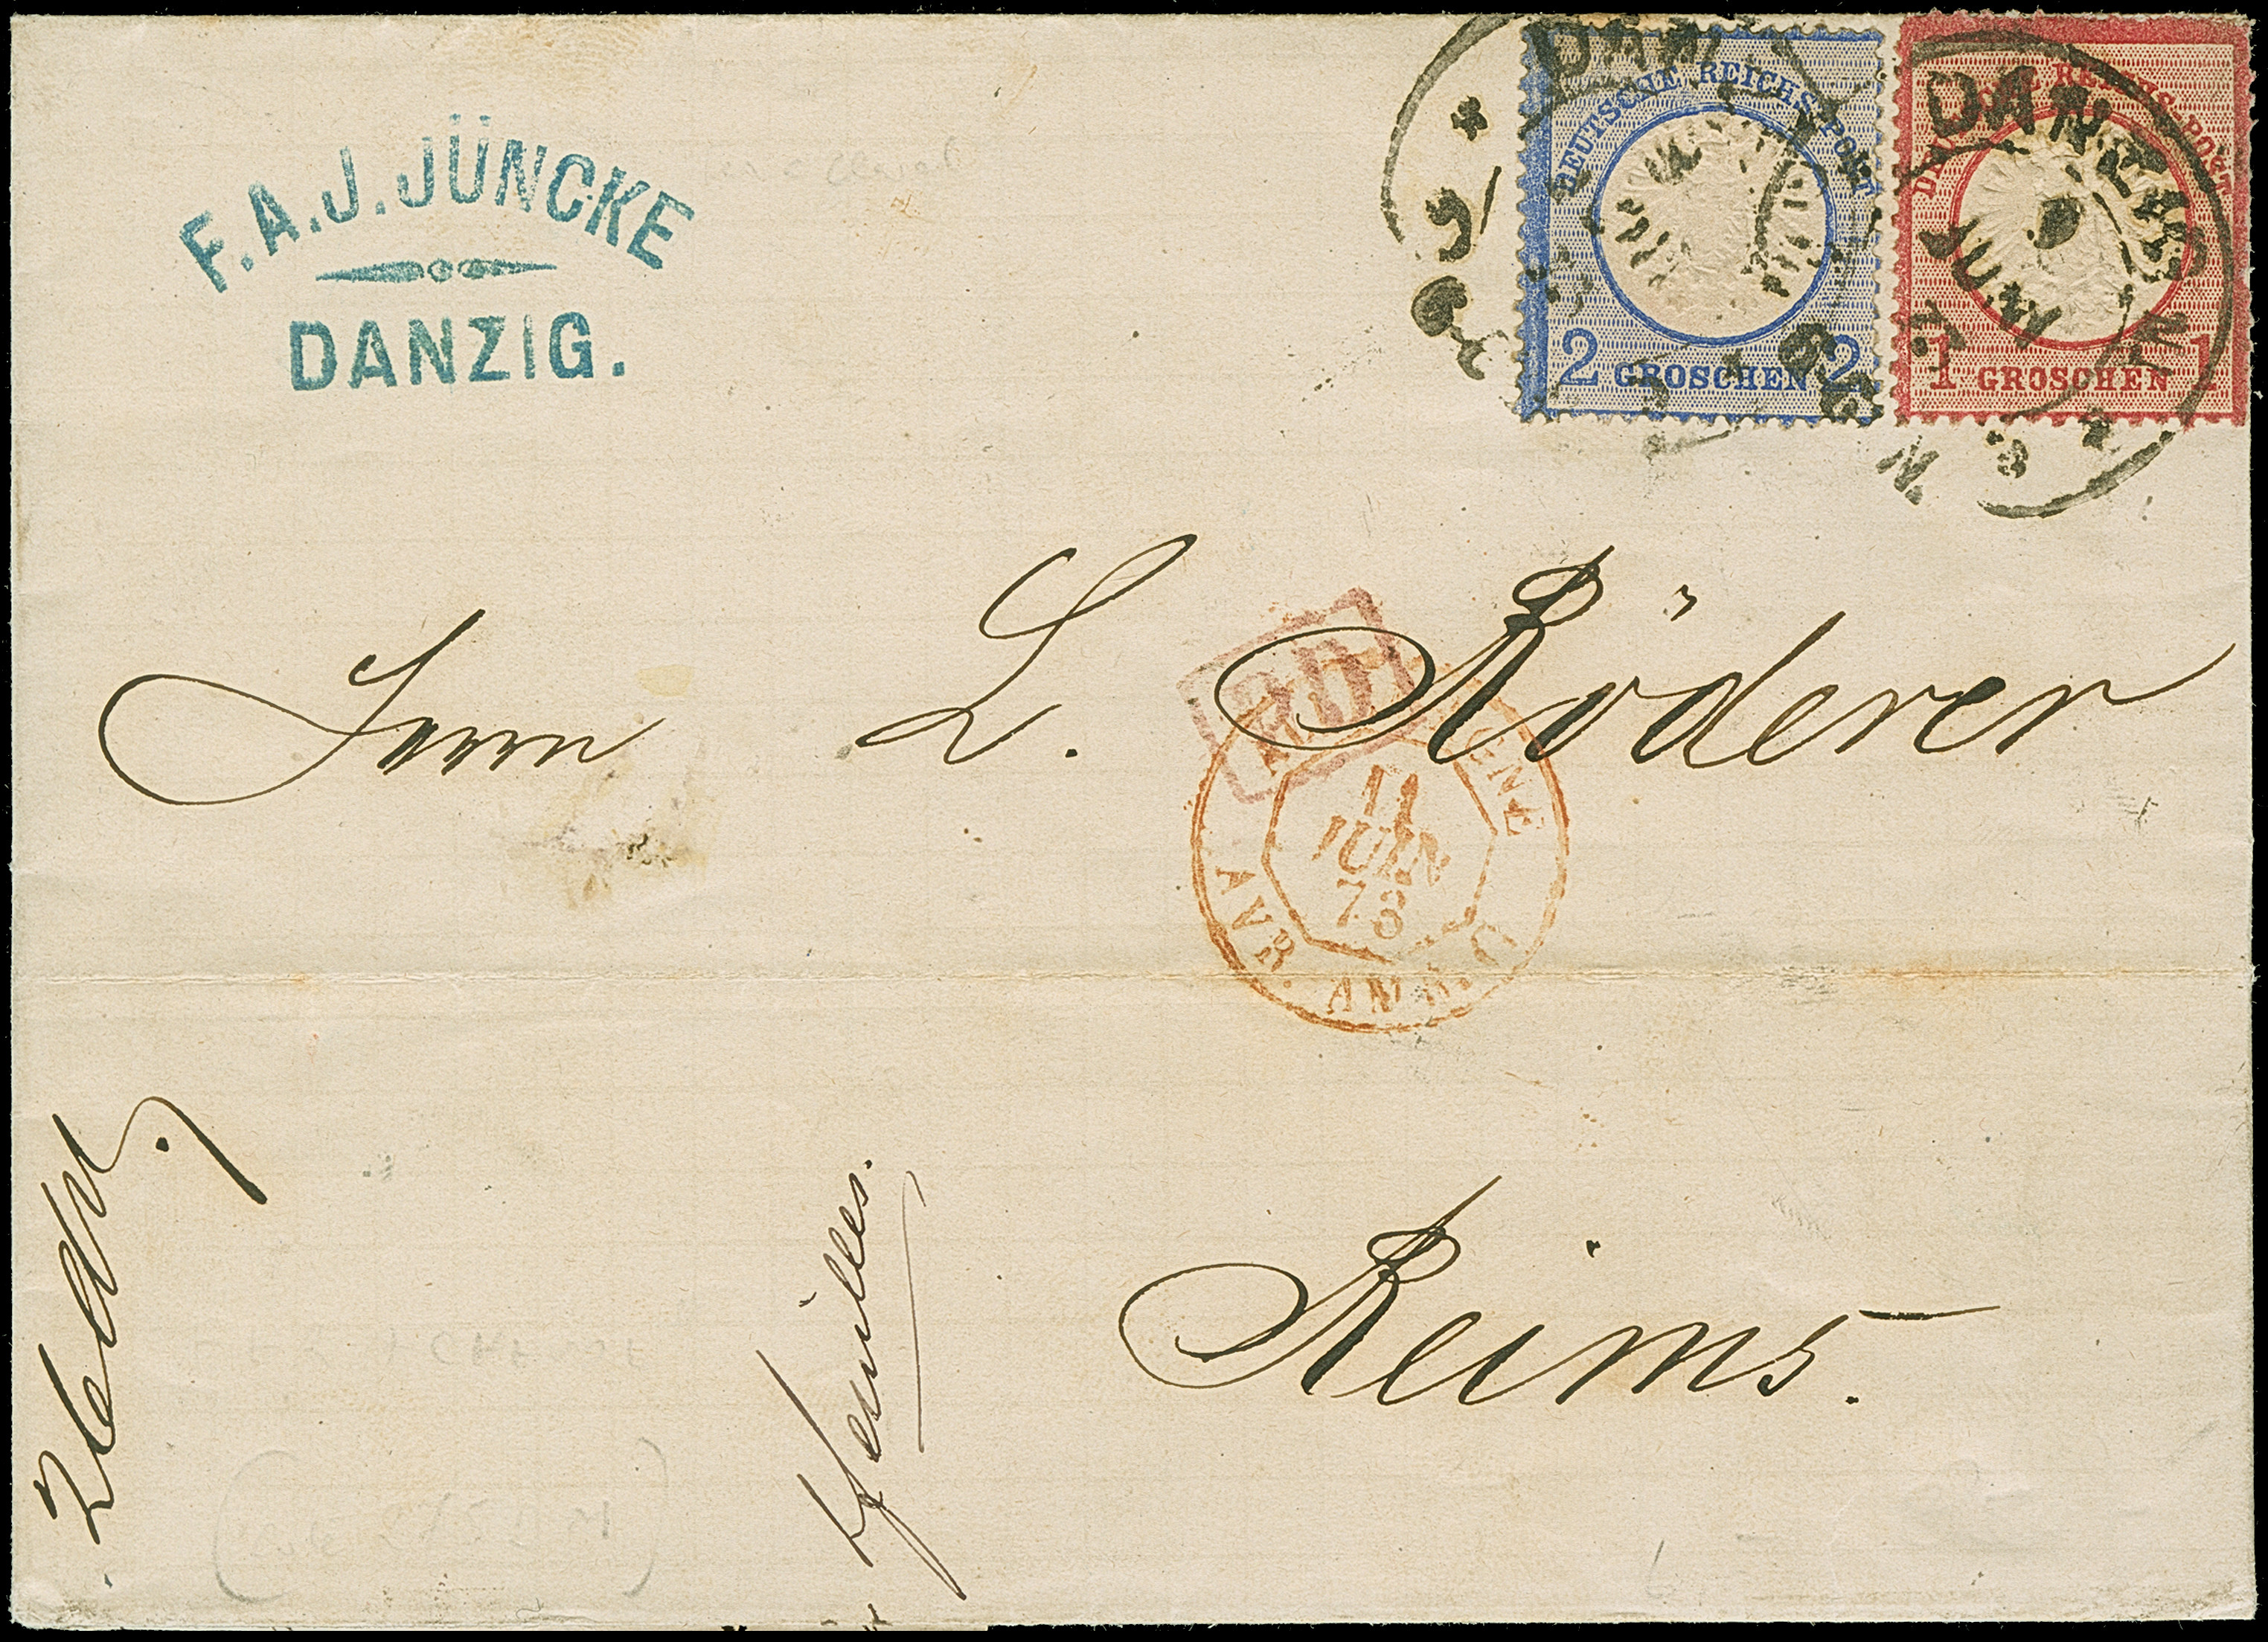 F. A. J. JÜNCKE
DANZIG.
DEUTSCHE REICHS-POST
2 GROSCHEN 2
DANZIG
REICHS-POST
1 GROSCHEN 1
Herrn L. Röderer
PD
11
JUIN
73
AVR.
Reims.